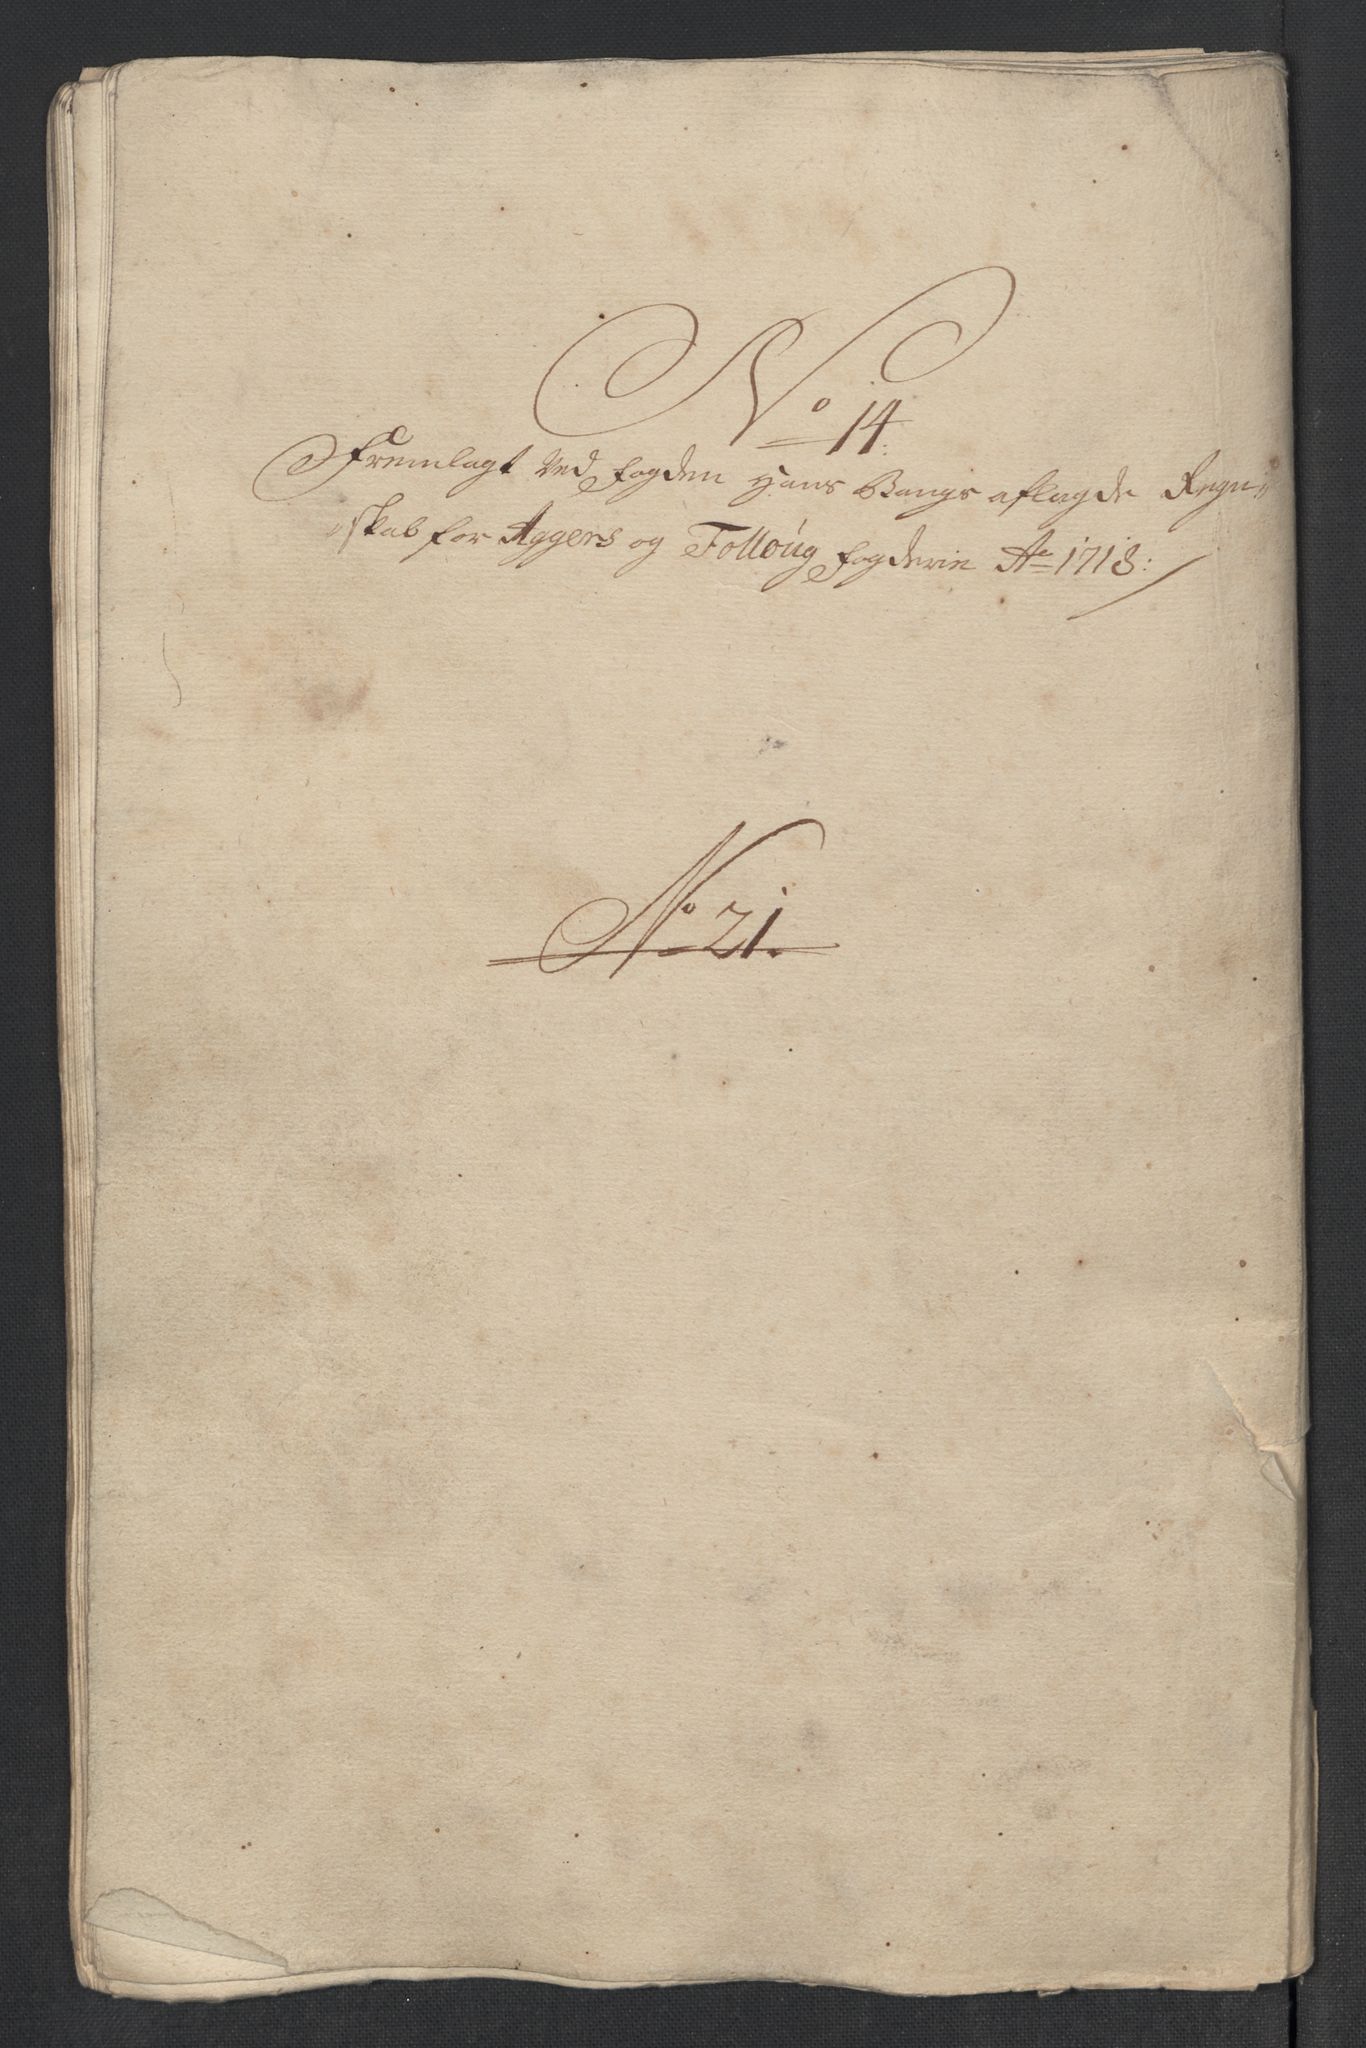 No 14.
Fremlagt Ved Fogden Hans Bangs aflagde Regn-
skab for Aggers og Folloug Fogderie Ao 1718:
No 21.